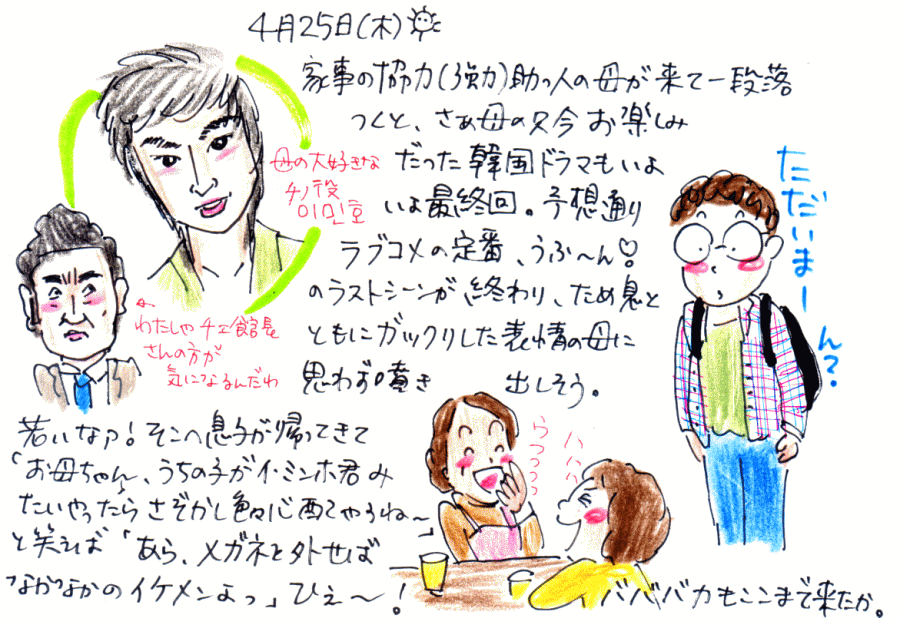 4月25日(木)
家事の協力(強力)助っ人の母が来て一段落
つくと、さぁ母の只今お楽しみ
だった韓国ドラマもいよ
いよ最終回。予想通り
ラブコメの定番、うふ〜ん♡
のラストシーンが終わり、ため息と
ともにガックリした表情の母に
思わず噴き出しそう。
母の大好きな
チノ役
이민호
わたしゃチェ館長
さんの方が
気になるんだわ
ただいまーん?
若いなァ!そこへ息子が帰ってきて
「お母ちゃん、うちの子がイ・ミンホ君み
たいやったらさぞかし色々心配でやろね〜」
と笑えば「あら、メガネを外せば
なかなかのイケメンよっ」ひぇ〜!
ハハハ
うっっっっ
ババババカもここまで来たか。